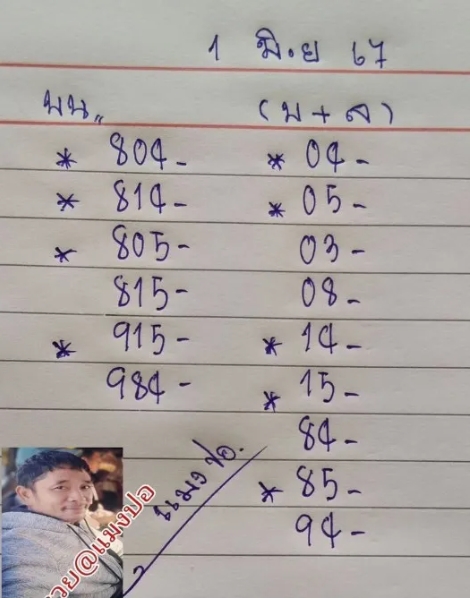 1 มิ.ย 67
บน,, (บ + ล)
* 804- * 04-
* 814- * 05-
* 805- 03-
815- 08-
* 915- * 14-
984- * 15-
84-
* 85-
94-
แมงปอ.
วย@แมงปอ